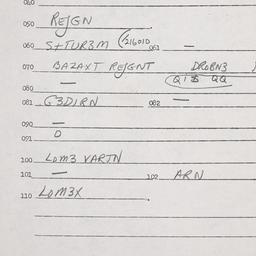 060
050 REJGN
060 S+TUR3M (216010 061 —
070 BAZAXT REJGNT DROBN3
080 — (QI$ QQ
081 G3DIRN 082 —
090 —
091 O
100 LOM3 VARTN
101 — 102 ARN
110 LOM3X